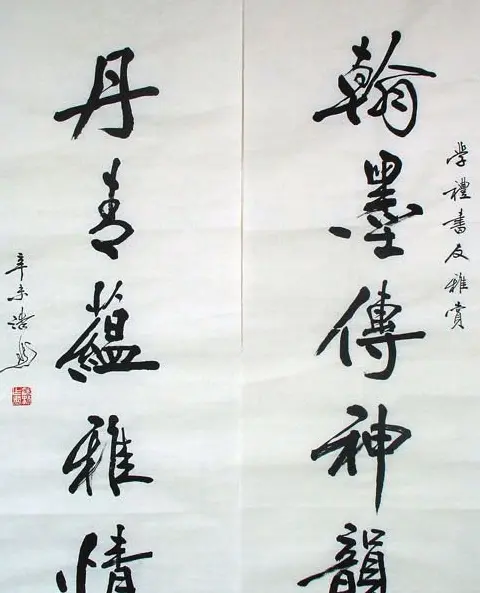 学禮書友雅赏
翰墨傳神韻
丹青蘊雅情
辛未